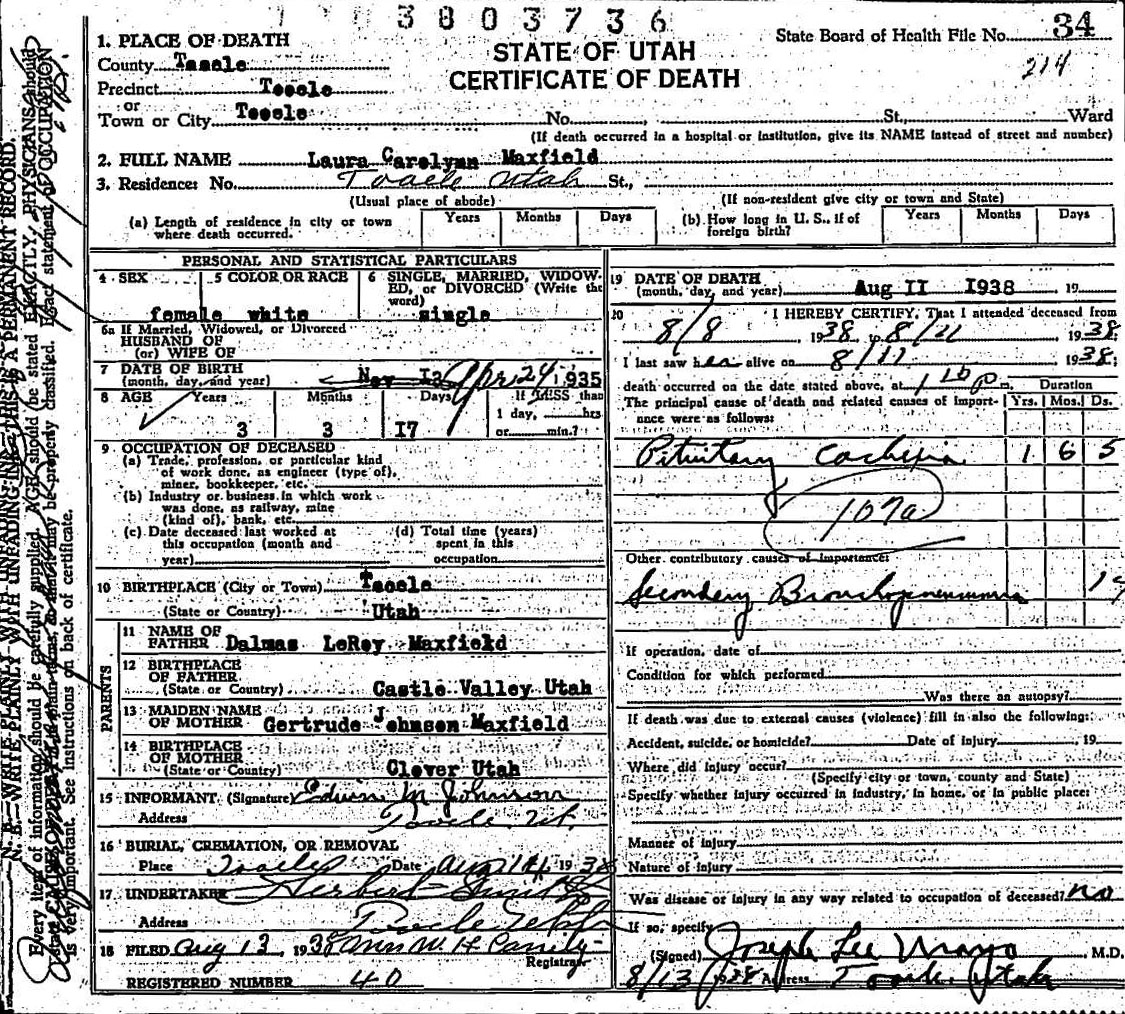 3803736
State Board of Health File No. 34
214
STATE OF UTAH
CERTIFICATE OF DEATH
1. PLACE OF DEATH
County Tooele
Precinct Tooele
or
Town or City Tooele No. St., Ward
(If death occurred in a hospital or institution, give its NAME instead of street and number)
2. FULL NAME Laura Carolynn Maxfield
3. Residence: No. Tooele Utah St.,
(Usual place of abode) (If non-resident give city or town and State)
(a) Length of residence in city or town where death occurred. Years Months Days
(b) How long in U. S., if of foreign birth? Years Months Days
PERSONAL AND STATISTICAL PARTICULARS
4 SEX female
5 COLOR OR RACE white
6 SINGLE, MARRIED, WIDOWED, or DIVORCED (Write the word) single
6a If Married, Widowed, or Divorced
HUSBAND OF
(or) WIFE OF
7 DATE OF BIRTH
(month, day, and year) Nov I3 Apr. 24 1935
8 AGE Years Months Days If LESS than
1 day, hrs
3 3 I7 or min.?
9 OCCUPATION OF DECEASED
(a) Trade, profession, or particular kind
of work done, as engineer (type of),
miner, bookkeeper, etc.
(b) Industry or business in which work
was done, as railway, mine
(kind of), bank, etc.
(c) Date deceased last worked at
this occupation (month and
year)
(d) Total time (years)
spent in this
occupation
10 BIRTHPLACE (City or Town) Tooele
(State or Country) Utah
PARENTS
11 NAME OF
FATHER Dalmas LeRoy Maxfield
12 BIRTHPLACE
OF FATHER
(State or Country) Castle Valley Utah
13 MAIDEN NAME
OF MOTHER Gertrude Johnson Maxfield
14 BIRTHPLACE
OF MOTHER
(State or Country) Clover Utah
15 INFORMANT (Signature) Edwin M Johnson
Address Tooele, Ut.
16 BURIAL, CREMATION, OR REMOVAL
Place Tooele Date Aug 14, 1938
17 UNDERTAKER Herbert
Address Tooele Utah
18 FILED Aug 13, 1938
Registrar
REGISTERED NUMBER 40
19 DATE OF DEATH
(month, day, and year) Aug II I938 19
20 I HEREBY CERTIFY, That I attended deceased from
8/8 1938 to 8/11 1938
I last saw her alive on 8/11 1938;
death occurred on the date stated above, at 1 p m. Duration
The principal cause of death and related causes of importance were as follows: Yrs. Mos. Ds.
Pituitary Cachexia 1 6 5
107a
Other contributory causes of importance:
Secondary Bronchopneumonia
If operation, date of
Condition for which performed
Was there an autopsy?
If death was due to external causes (violence) fill in also the following:
Accident, suicide, or homicide? Date of injury , 19
Where did injury occur?
(Specify city or town, county and State)
Specify whether injury occurred in industry, in home, or in public place:
Manner of injury
Nature of injury
Was disease or injury in any way related to occupation of deceased? no
If so, specify
(Signed) Joseph Lee Mayo, M.D.
8/13 1938 Address Tooele, Utah
N. B.—WRITE PLAINLY WITH UNFADING INK—THIS IS A PERMANENT RECORD.
Every item of information should be carefully supplied. AGE should be stated EXACTLY. PHYSICIANS should
is very important. See instructions on back of certificate.